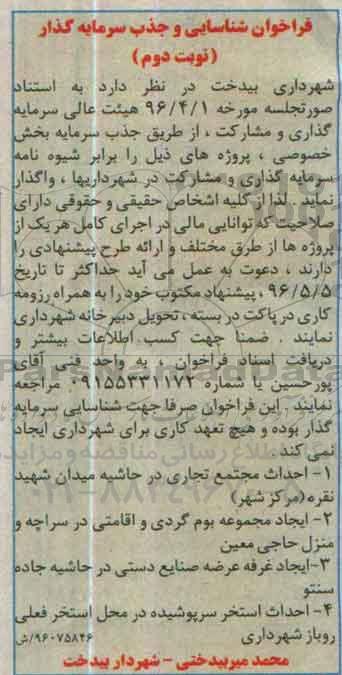 فراخوان شناسایی و جذب سرمایه گذار
(نوبت دوم)
شهرداری بیدخت در نظر دارد به استناد
صورتجلسه مورخه ۹۶/۴/۱ هیئت عالی سرمایه
گذاری و مشارکت ، از طریق جذب سرمایه بخش
خصوصی ، پروژه های ذیل را برابر شیوه نامه
سرمایه گذاری و مشارکت در شهرداریها ، واگذار
نماید . لذا از کلیه اشخاص حقیقی و حقوقی دارای
صلاحیت که توانایی مالی در اجرای کامل هر یک از
پروژه ها از طرق مختلف و ارائه طرح پیشنهادی را
دارند ، دعوت به عمل می آید حداکثر تا تاریخ
۹۶/۵/۵ ، پیشنهاد مکتوب خود را به همراه رزومه
کاری در پاکت در بسته ، تحویل دبیرخانه شهرداری
نمایند . ضمنا جهت کسب اطلاعات بیشتر و
دریافت اسناد فراخوان ، به واحد فنی آقای
پورحسین یا شماره ۰۹۱۵۵۳۳۱۱۷۲ مراجعه
نمایند . این فراخوان صرفا جهت شناسایی سرمایه
گذار بوده و هیچ تعهد کاری برای شهرداری ایجاد
نمی کند.
۱- احداث مجتمع تجاری در حاشیه میدان شهید
نقره (مرکز شهر)
۲- ایجاد مجموعه بوم گردی و اقامتی در سراچه و
منزل حاجی معین
۳-ایجاد غرفه عرضه صنایع دستی در حاشیه جاده
سنتو
۴- احداث استخر سرپوشیده در محل استخر فعلی
روباز شهرداری ۹۶۰۷۵۸۴۶/ش
محمد میربیدختی - شهردار بیدخت